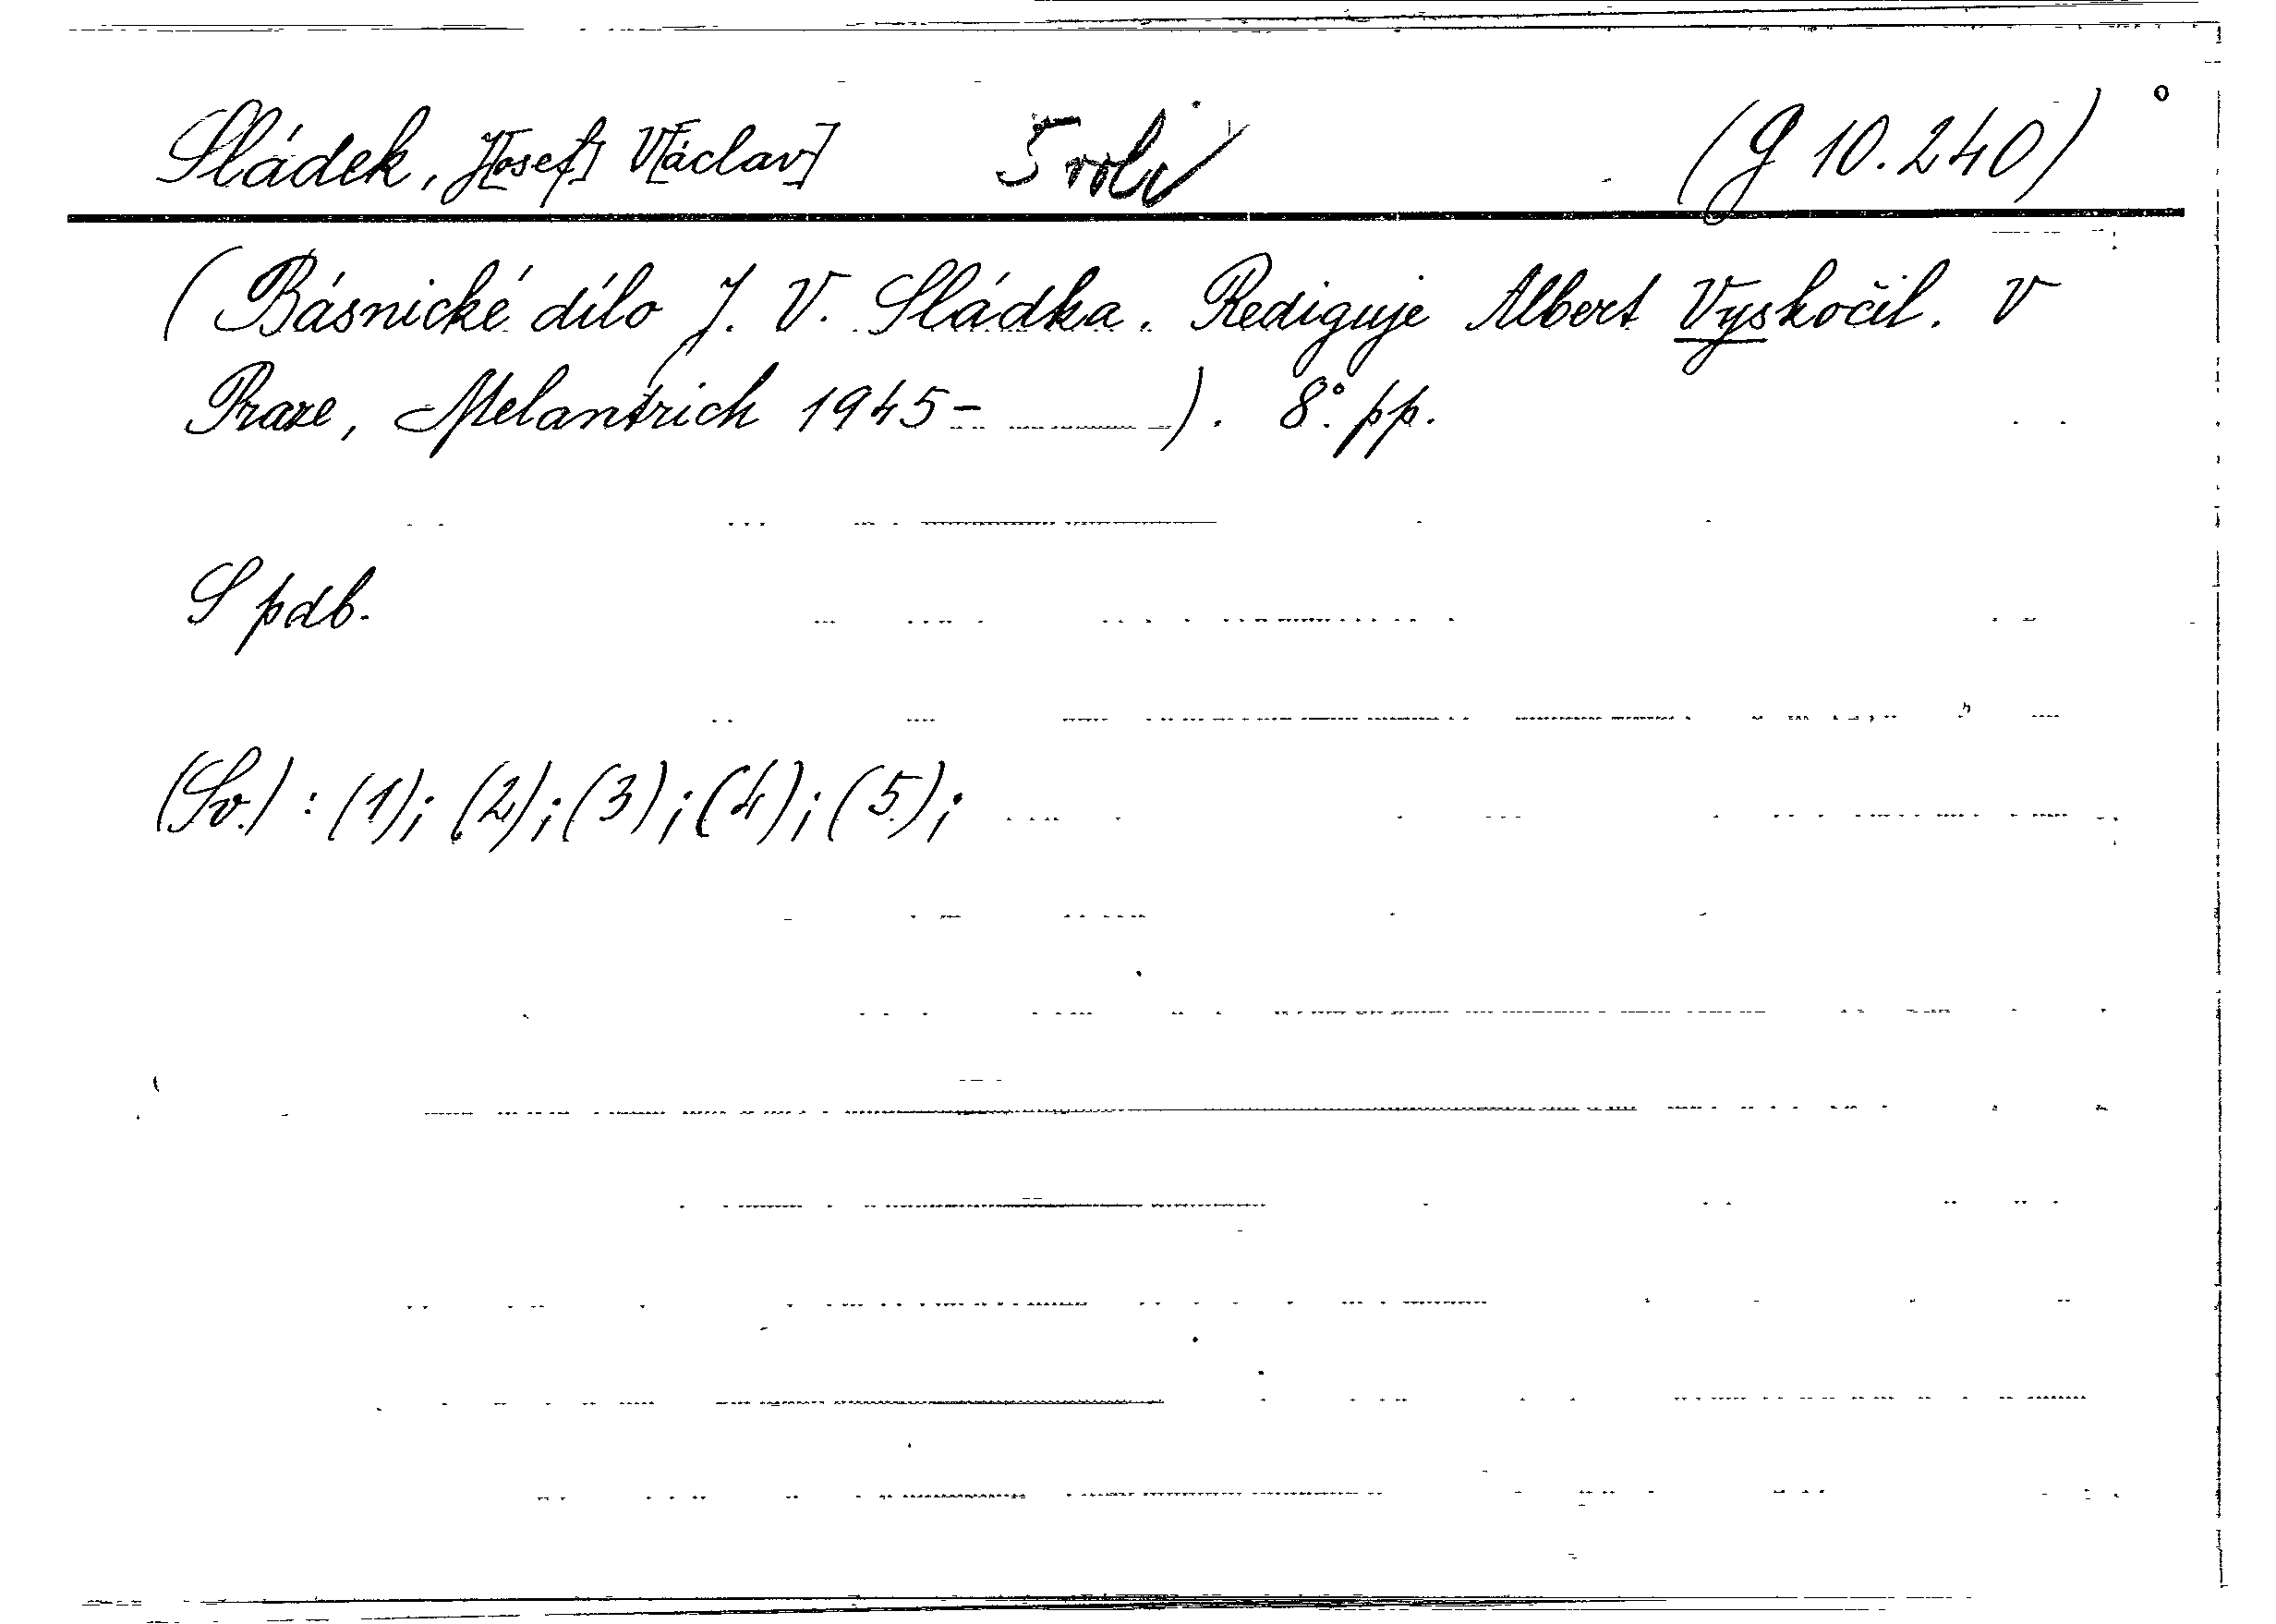 Sládek, J[osef] V[áclav] 5 voli (G 10.240)
(Básnické dílo J. V. Sládka. Rediguje Albert Vyskočil. V
Praze, Melantrich 1945- ). 8°. pp.
S pdb.
(Sv.) : (1); (2); (3); (4); (5);